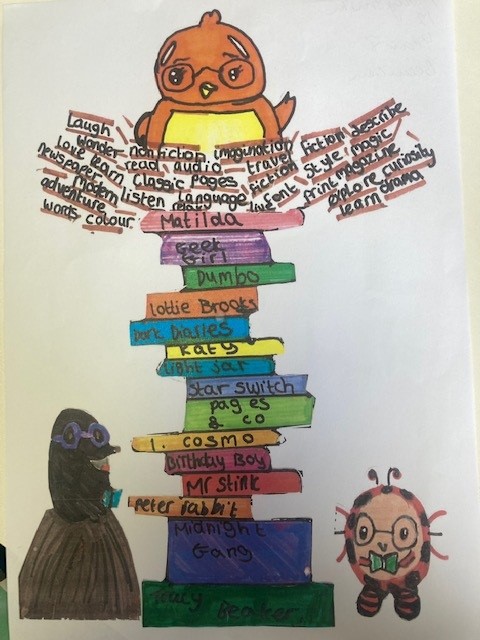 Laugh
Wonder nonfiction imagination fiction describe
love learn read audio travel style magic
newspapers classic pages fiction print magazine
modern listen language fonts explore curiosity
adventure relax live learn drama
words colour
Matilda
Geek
Girl
Dumbo
Lottie Brooks
Dork Diaries
Katy
Light Jar
Star switch
pages
& co
1. cosmo
Birthday Boy
Mr Stink
Peter rabbit
Midnight
Gang
Tracy
Beaker